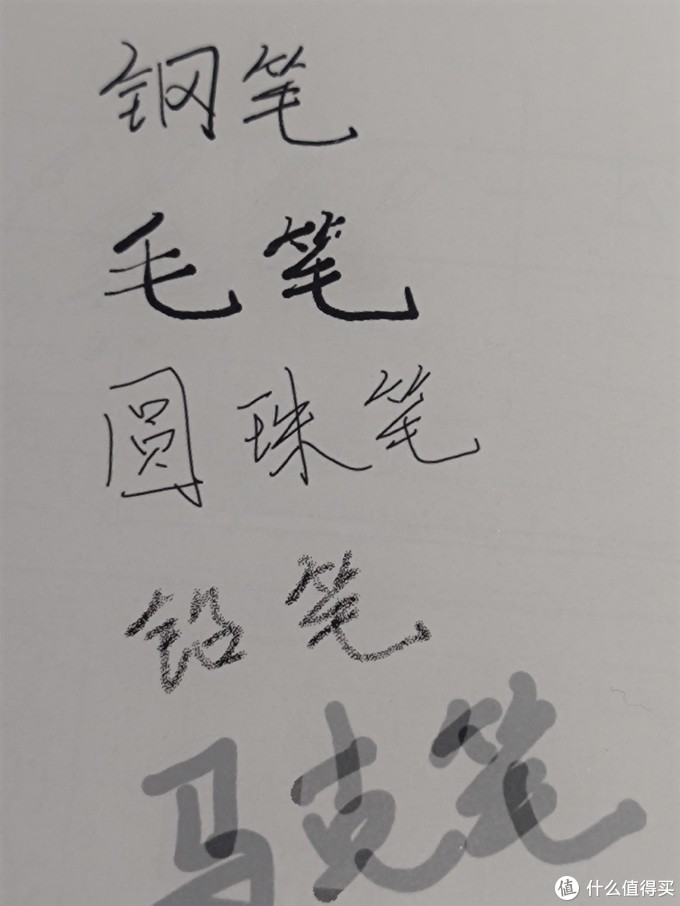 钢笔
毛笔
圆珠笔
铅笔
马克笔
值 什么值得买